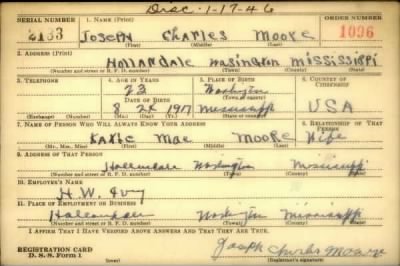 Disc. 1-17-46
SERIAL NUMBER 1. NAME (Print) ORDER NUMBER
JOSEPH CHARLES MOORE 1096
(First) (Middle) (Last)
2. ADDRESS (Print)
HOLLANDALE WASINGTON MISSISSIPPI
(Number and street or R. F. D. number) (Town) (County) (State)
3. TELEPHONE 4. AGE IN YEARS 5. PLACE OF BIRTH 6. COUNTRY OF CITIZENSHIP
23 Washington
DATE OF BIRTH (Town or county)
8 1917 Mississippi USA
(Exchange) (Number) (Mo.) (Day) (Yr.) (State or country)
7. NAME OF PERSON WHO WILL ALWAYS KNOW YOUR ADDRESS 8. RELATIONSHIP OF THAT PERSON
Mae Moore Wife
(Mr., Mrs., Miss) (First) (Middle) (Last)
9. ADDRESS OF THAT PERSON
Hollandale Washington Mississippi
(Number and street or R. F. D. number) (Town) (County) (State)
10. EMPLOYER'S NAME
H. W. Ivy
11. PLACE OF EMPLOYMENT OR BUSINESS
Hollandale Washington Mississippi
(Number and street or R. F. D. number) (Town) (County) (State)
I AFFIRM THAT I HAVE VERIFIED ABOVE ANSWERS AND THAT THEY ARE TRUE.
REGISTRATION CARD
D. S. S. Form 1
Joseph Charles Moore
(Registrant's signature)